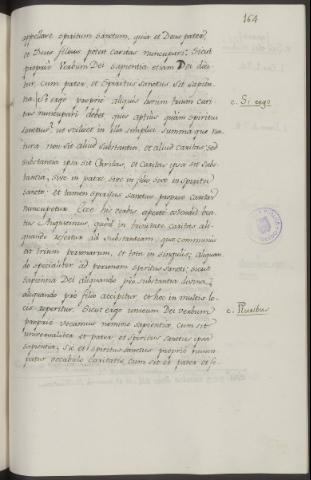 164
appellare spiritum sanctum, quia et Deus pater,
et Deus filius potest caritas nuncupari. Sicut
proprie Verbum Dei sapientia etiam Dei dici-
tur, cum pater, et Spiritus sanctus sit sapien-
tia. Si ergo proprie aliquis horum trium cari
c. Si ergo
tas nuncupari debet, quis aptius quam spiritus
sanctus? ut scilicet in illa simplici summa que na
tura non sit aliud substantia, et aliud caritas, sed
substantia ipsa sit Charitas, et Caritas ipsa sit subs-
tantia, sive in patre, sive in filio, sive in spiritu
sancto. et tamen spiritus sanctus proprie caritas
nuncupetur. Ecce his verbis aperte ostendit bea-
tus Augustinus, quod in trinitate caritas ali-
quando refertur ad substantiam, que communis
est trium personarum, et tota in singulis; aliquan
do specialiter ad personam spiritus sancti; sicut
sapientia Dei aliquando pro substantia divina,
aliquando pro filio accipitur. et hoc in multis lo-
cis reperitur. Sicut ergo unicum Dei verbum
c. Pluribus
proprie vocamus nomine sapientiae, cum sit
universaliter et pater, et spiritus sanctus ipsa
sapientia; sic et spiritus sanctus proprie nuncu
patur vocabulo caritatis, cum sit et pater et fi-